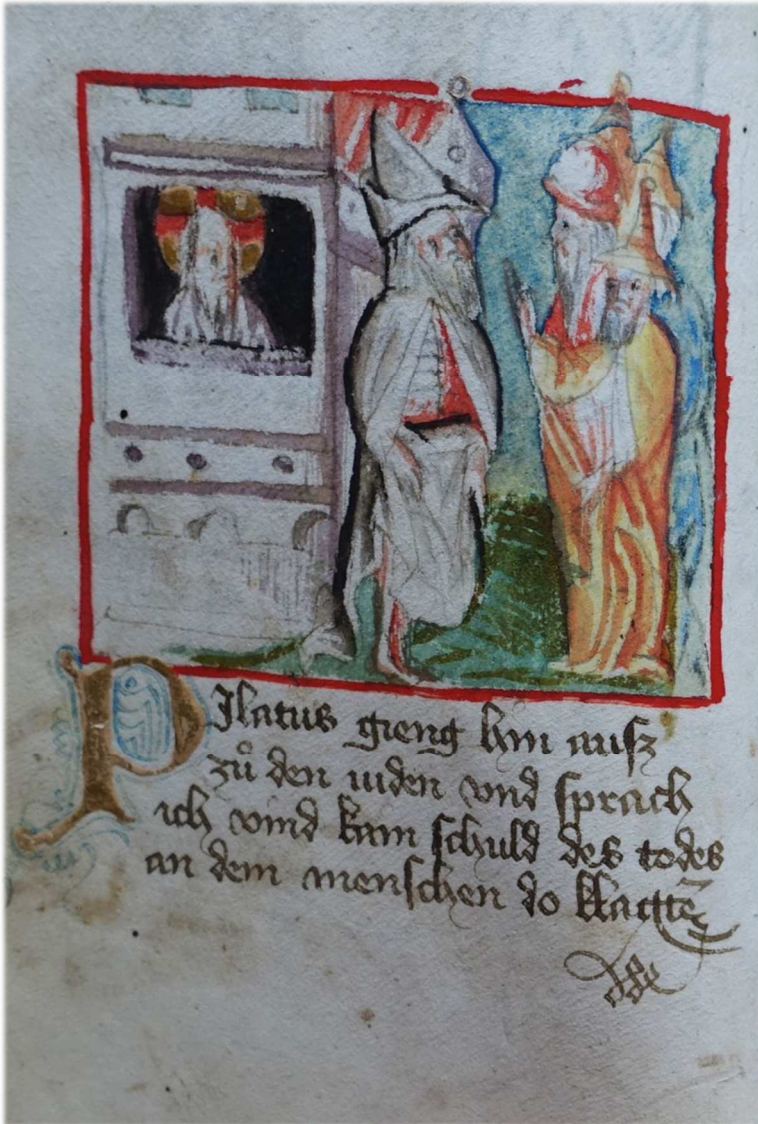 PIlatus gieng hin ausz
zů den iuden vnd sprach
ich vind kain schuld des todes
an dem menschen do klagtē